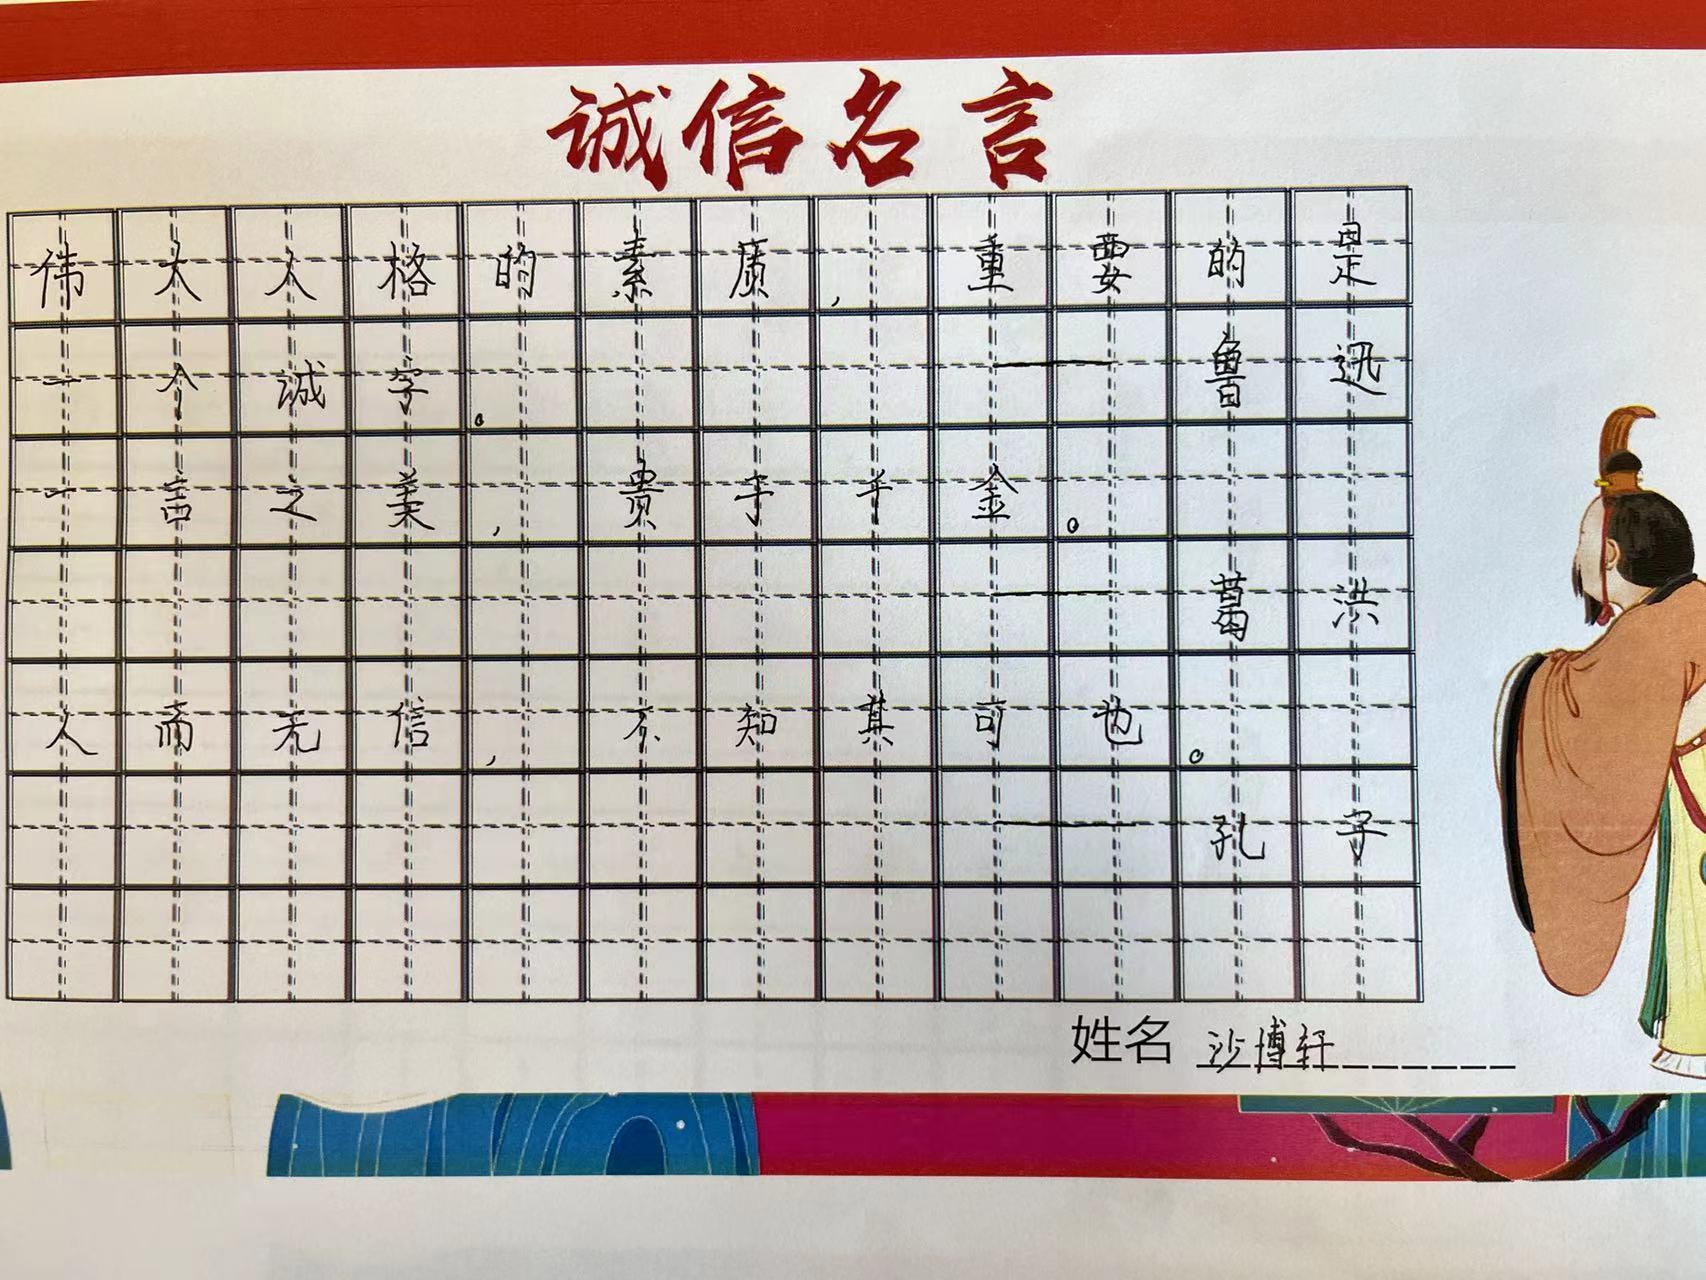 诚信名言
伟大人格的素质,重要的是
一个诚字。——鲁迅
一言之美,贵于千金。
——葛洪
人而无信,不知其可也。
——孔子
姓名 沙博轩